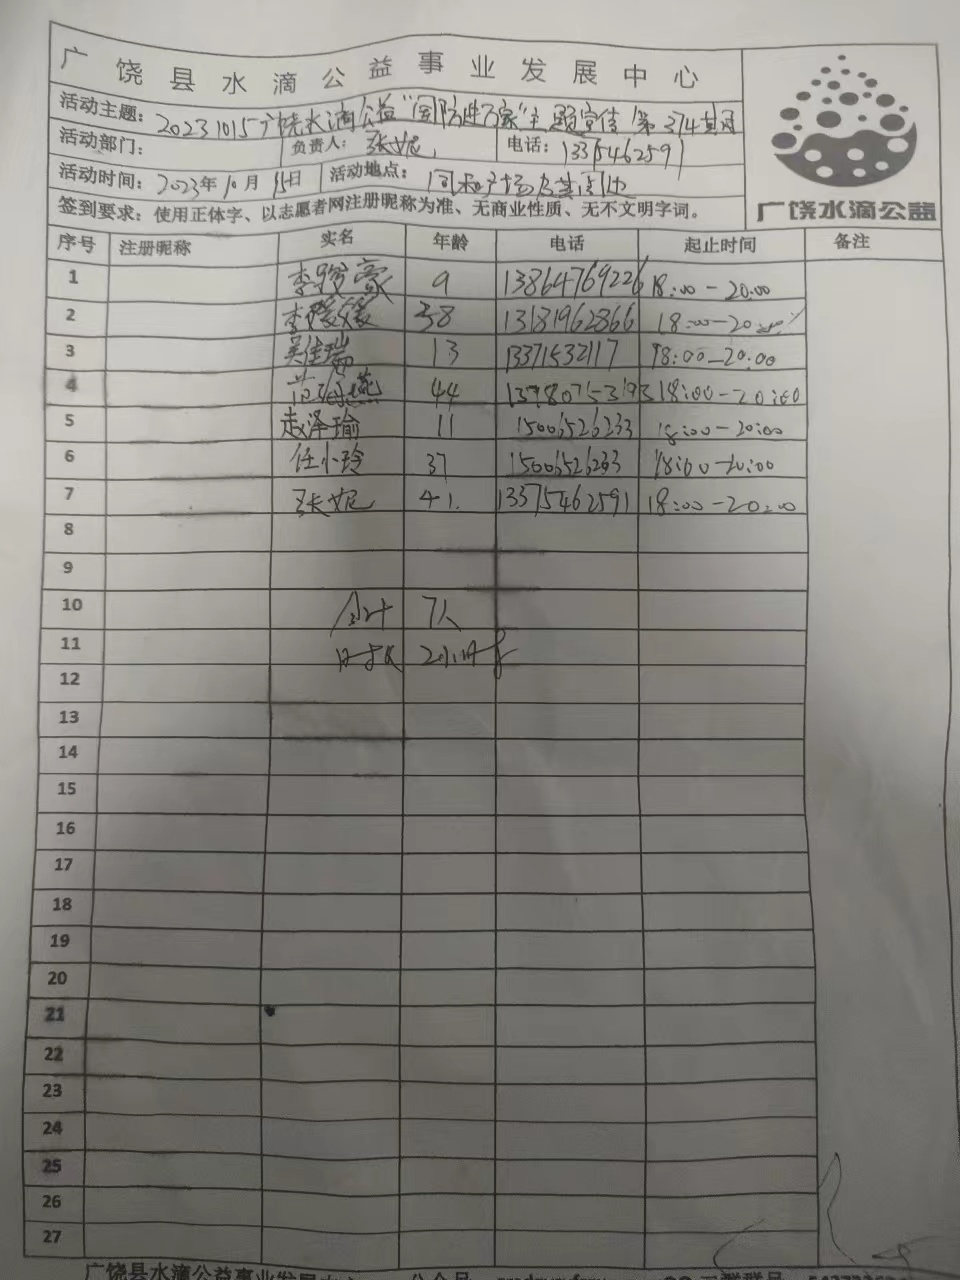 广饶县水滴公益事业发展中心
活动主题：20231015广饶水滴公益“国防进万家”主题宣传第374期
活动部门： 负责人：张妮 电话：13375462591
活动时间：2023年10月15日 活动地点：同和广场及其周边
签到要求：使用正体字、以志愿者网注册昵称为准、无商业性质、无不文明字词。
广饶水滴公益
序号 注册昵称 实名 年龄 电话 起止时间 备注
1 李骏豪 9 13864769226 18:00-20:00
2 李媛媛 38 13181962866 18:00-20:00
3 吴佳瑞 13 13371532117 18:00-20:00
4 范海燕 44 18:00-20:00
5 赵泽瑜 11 15006526233 18:00-20:00
6 任小玲 37 15006526233 18:00-20:00
7 张妮 41. 13375462591 18:00-20:00
8
9
10 合计 7人
11 时长 2小时
12
13
14
15
16
17
18
19
20
21
22
23
24
25
26
27
广饶县水滴公益事业发展中心